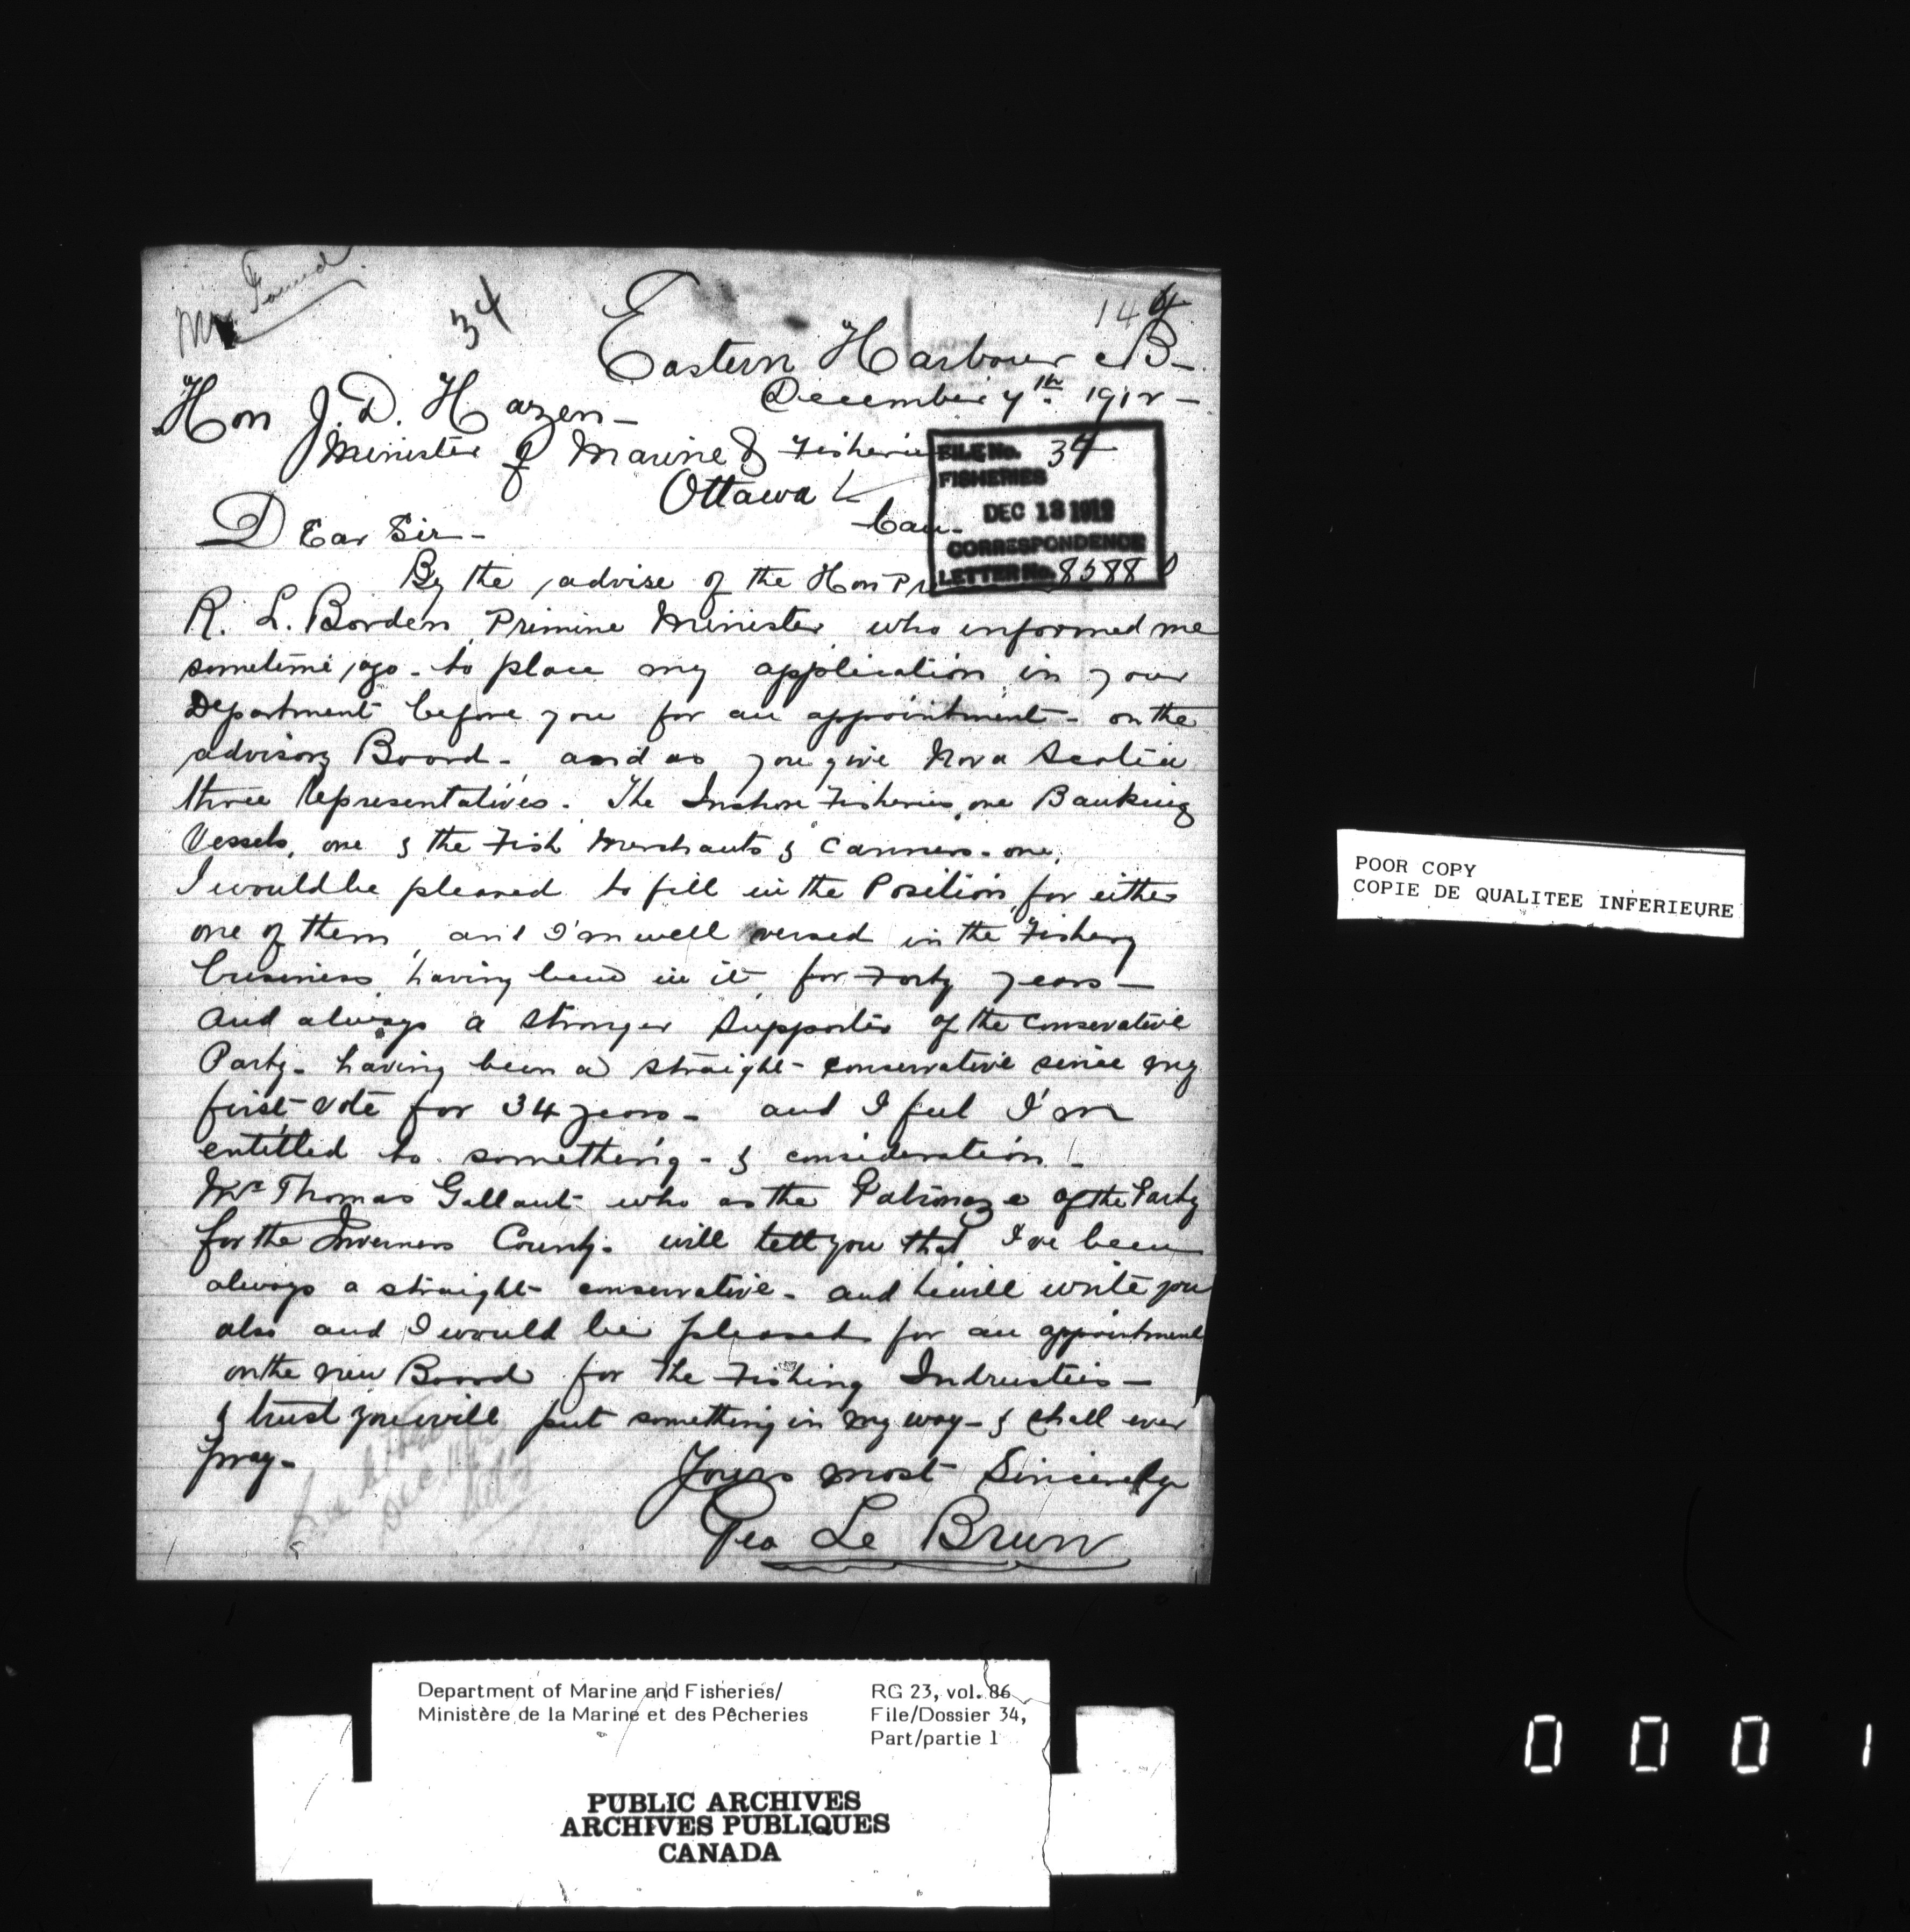 Mr. Found
34
144
Eastern Harbour CB-
December 7th. 1912 -
Hon J. D. Hazen -
Minister of Marine & Fisheries
Ottawa
Can-
FILE No. 34
FISHERIES
DEC 13 1912
CORRESPONDENCE
LETTER No. 8588
Dear Sir -
By the advise of the Hon
R. L. Borden Primine Minister who informed me
sometime ago - to place my application in your
Department before you for an appointment - on the
advisory Board - and as you give Nova Scotia
three Representatives. The Inshore Fisheries, one Banking
Vessels, one & the Fish Merchants & Canners - one,
I would be pleased to fill in the Position, for either
one of them, and I'm well versed in the Fishery
business having been in it for Forty years -
and always a stronger Supporter of the Conservative
Party - having been a straight - conservative since my
first - vote for 34 years - and I feel I'm
entitled to something - & consideration -
Mr Thomas Gallant who as the Patronage of the Party
for the Inverness County - will tell you that I've been
always a straight - conservative - and he will write you
also and I would be pleased for an appointment
on the new Board for the Fishing Indrusties -
& trust you will put something in my way - & shall ever
pray -
Yours most Sincerely
Geo Le Brun
POOR COPY
COPIE DE QUALITEE INFERIEURE
Department of Marine and Fisheries/
Ministère de la Marine et des Pêcheries
RG 23, vol. 86
File/Dossier 34,
Part/partie 1
PUBLIC ARCHIVES
ARCHIVES PUBLIQUES
CANADA
0 0 0 1